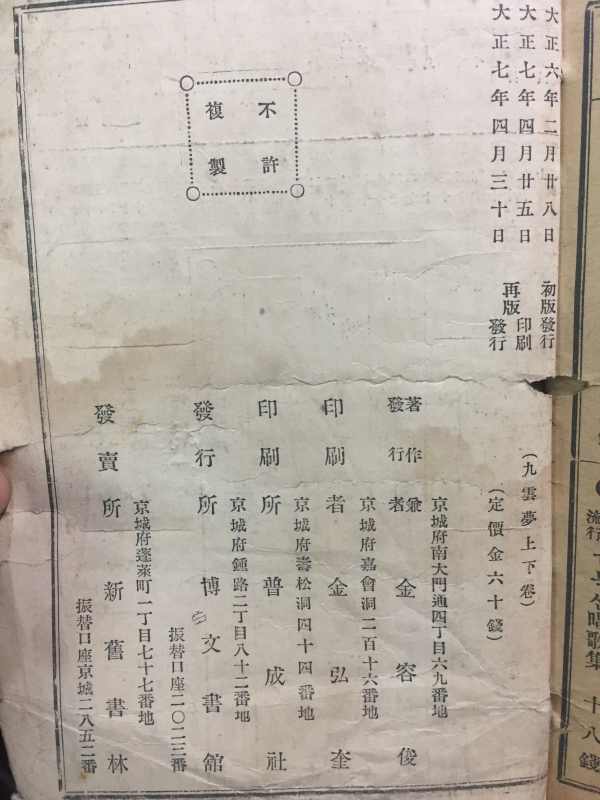 大正六年二月廿八日 初版發行
大正七年四月廿五日 再版印刷
大正七年四月三十日 發行
不許
複製
(九雲夢上下卷)
(定價金六十錢)
京城府南大門通四丁目六九番地
著作兼發行者 金容俊
京城府嘉會洞二百十六番地
印刷者 金弘奎
京城府壽松洞四十四番地
印刷所 普成社
京城府鍾路二丁目八十二番地
發行所 博文書館
振替口座二〇二三番
京城府蓬萊町一丁目七十七番地
發賣所 新舊書林
振替口座京城二八五二番
流行
唱歌集 十八錢